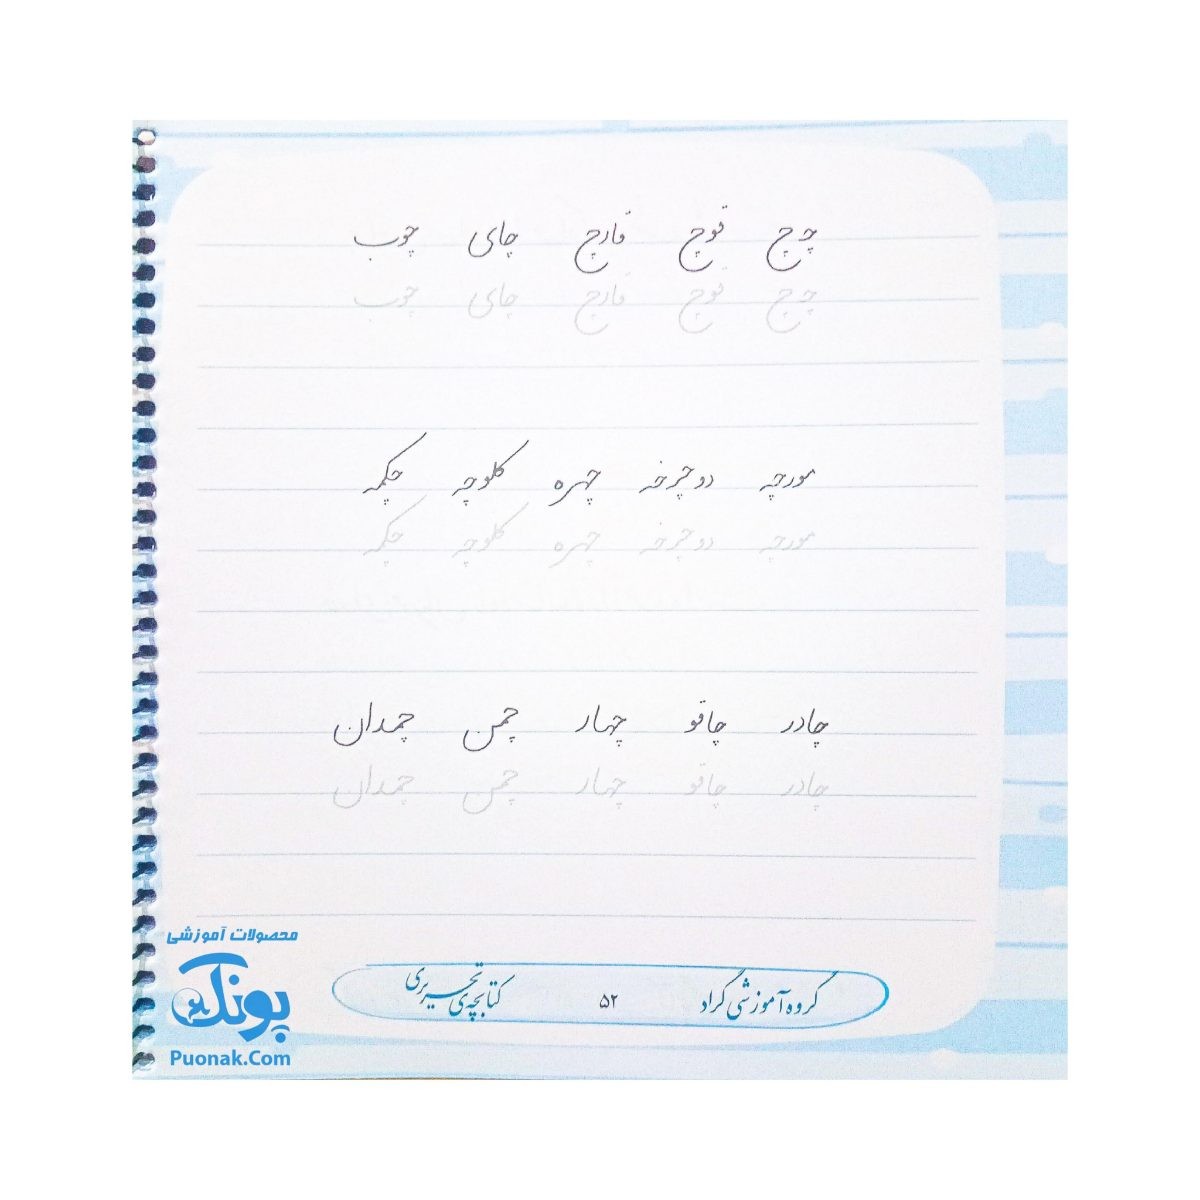 چ چ قوچ قارچ چای چوب
چ چ قوچ قارچ چای چوب
مورچه دوچرخه چهره کلوچه چکمه
مورچه دوچرخه چهره کلوچه چکمه
چادر چاقو چهار چمن چمدان
چادر چاقو چهار چمن چمدان
گروه آموزشی گراد ۵۲ کتابچه‌ی تحریری
محصولات آموزشی
پونک
Puonak.Com